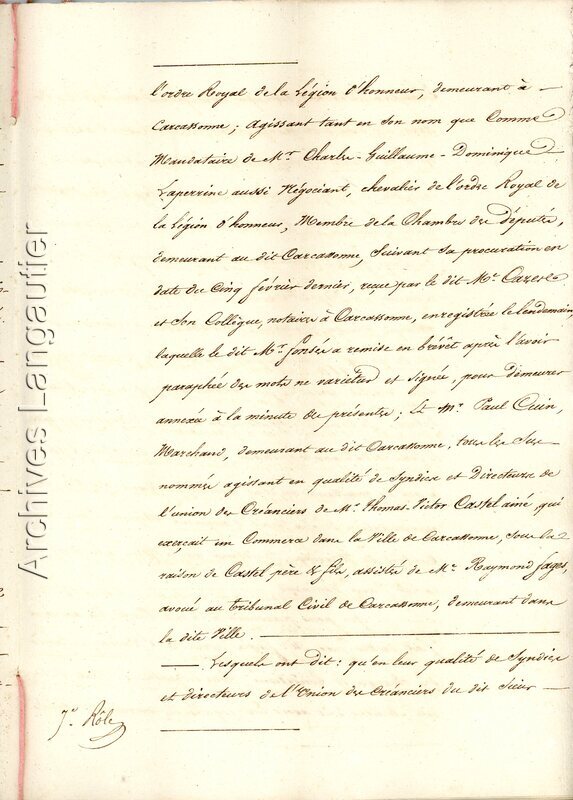 l'ordre Royal de la Légion d'honneur, demeurant à
Carcassonne; agissant tant en son nom que Comme
Mandataire de Mr. Charles-Guillaume-Dominique
Laperrine aussi Négociant, chevalier de l'ordre Royal de
la Légion d'honneur, Membre de la Chambre des députés,
demeurant au dit Carcassonne, suivant sa procuration en
date du Cinq février dernier, reçue par le dit Me.
et son Collègue, notaires à Carcassonne, enregistrée le lendemain
laquelle le dit Mr. a remise en brévet après l'avoir
paraphée des mots ne varietur et signée, pour demeurer
annexée à la minute des présentes; Et Mr. Paul Cuin,
Marchand, demeurant au dit Carcassonne, tous les Sus
nommés agissant en qualité de Syndics et Directeurs de
l'union des Créanciers de Mr. Thomas-Victor Castel ainé, qui
exerçait un Commerce dans la Ville de Carcassonne, sous la
raison de Castel père & fils, assistés de Me. Raymond fages,
avoué au tribunal Civil de Carcassonne, demeurant dans
la dite Ville.
Lesquels ont dit: qu'en leur qualité de Syndics
et directeurs de l'Union des Créanciers du dit Sieur
7e. Rôle
Archives Langautier